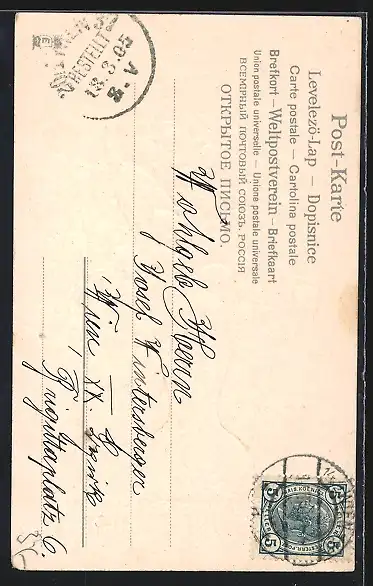 Post-Karte
Levelezö-Lap — Dopisnice
Carte postale — Cartolina postale
Brefkort — Weltpostverein — Briefkaart
Union postale universelle — Unione postale universale
ВСЕМІРНЫЙ ПОЧТОВЫЙ СОЮЗЪ. РОССІЯ
ОТКРЫТОЕ ПИСЬМО
BESTELLT
13.3.05
Wohlgeb Herrn
Josef Wintersberger
Wien XX. Bezirk
Brigittaplatz 6
5 5
5 5